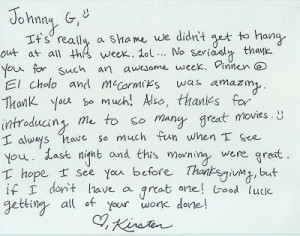 Johnny G,
It's really a shame we didn't get to hang
out at all this week. Lol... No seriously thank
you for such an awesome week. Dinner @
El Cholo and McCormiks was amazing.
Thank you so much! Also, thanks for
introducing me to so many great movies.
I always have so much fun when I see
you. Last night and this morning were great.
I hope I see you before Thanksgiving, but
if I don't have a great one! Good luck
getting all of your work done!
♡, Kirsten